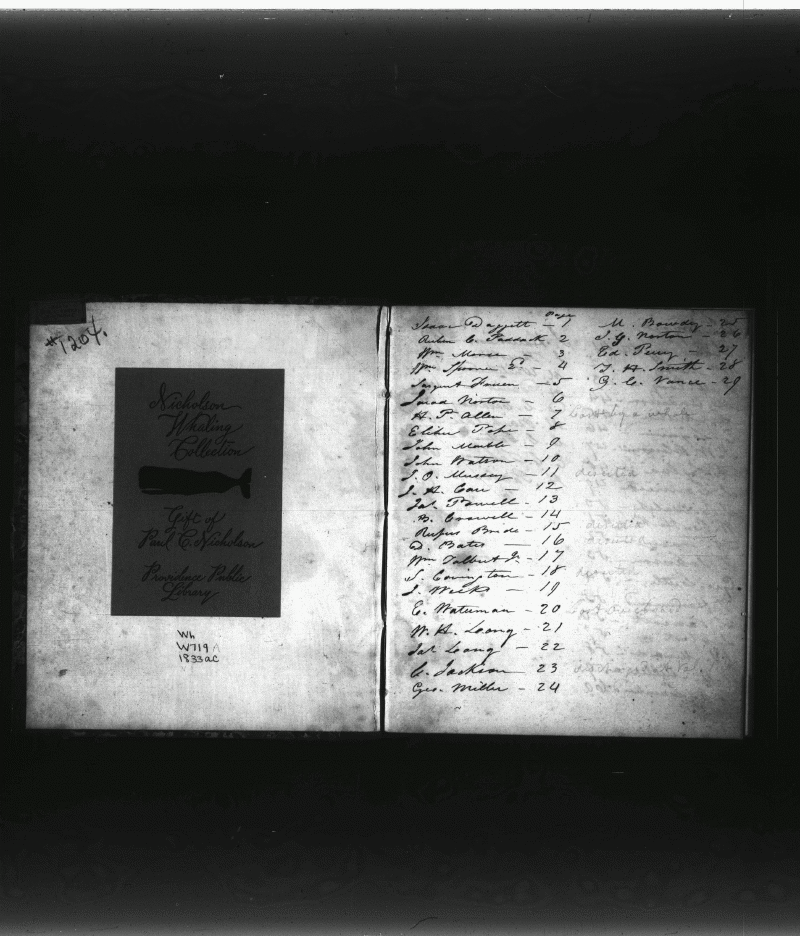 #1204.
Nicholson
Whaling
Collection
Gift of
Paul C. Nicholson
Providence Public
Library
Wh
W719A
1833ac
Page
Isaac Daggett - 1
C. Paddack 2
Wm Morse - 3
Wm Spooner - 4
Sargent - 5
Jarad Norton - 6
H. P. Allen - 7
Elihu Pope - 8
John Marble - 9
John Watson - 10
J. O. Mussey - 11
J. H. Carr - 12
Jas. Powell - 13
B. Crowell - 14
Rufus Bride - 15
D. Bates - 16
Wm Talbut Jr - 17
S. Covington - 18
J. Weeks - 19
E. Waterman - 20
W. H. Loang - 21
Jas Loang - 22
C. Jackson 23
Geo. Miller - 24
M. Bowdy - 25
J. G. Norton - 26
Ed. Perry - 27
T. H. Smith - 28
C. Vance - 29